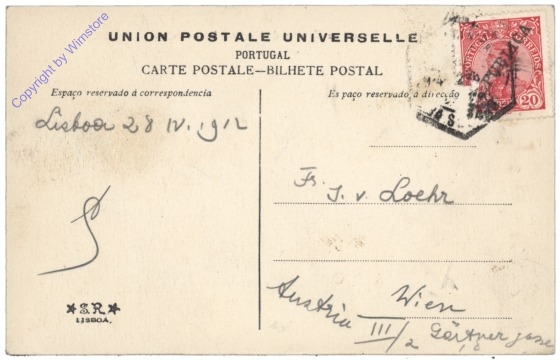 UNION POSTALE UNIVERSELLE
PORTUGAL
CARTE POSTALE—BILHETE POSTAL
Espaço reservado á correspondencia
Es paço reservado á direcção
Lisboa 28 IV. 912
Fr. J. v. Loehr
Wien
Austria III/2 Gärtnergasse
★S.R★
LISBOA.
PORTUGAL
CORREIOS
REPUBLICA
20
Copyright by Wimstore